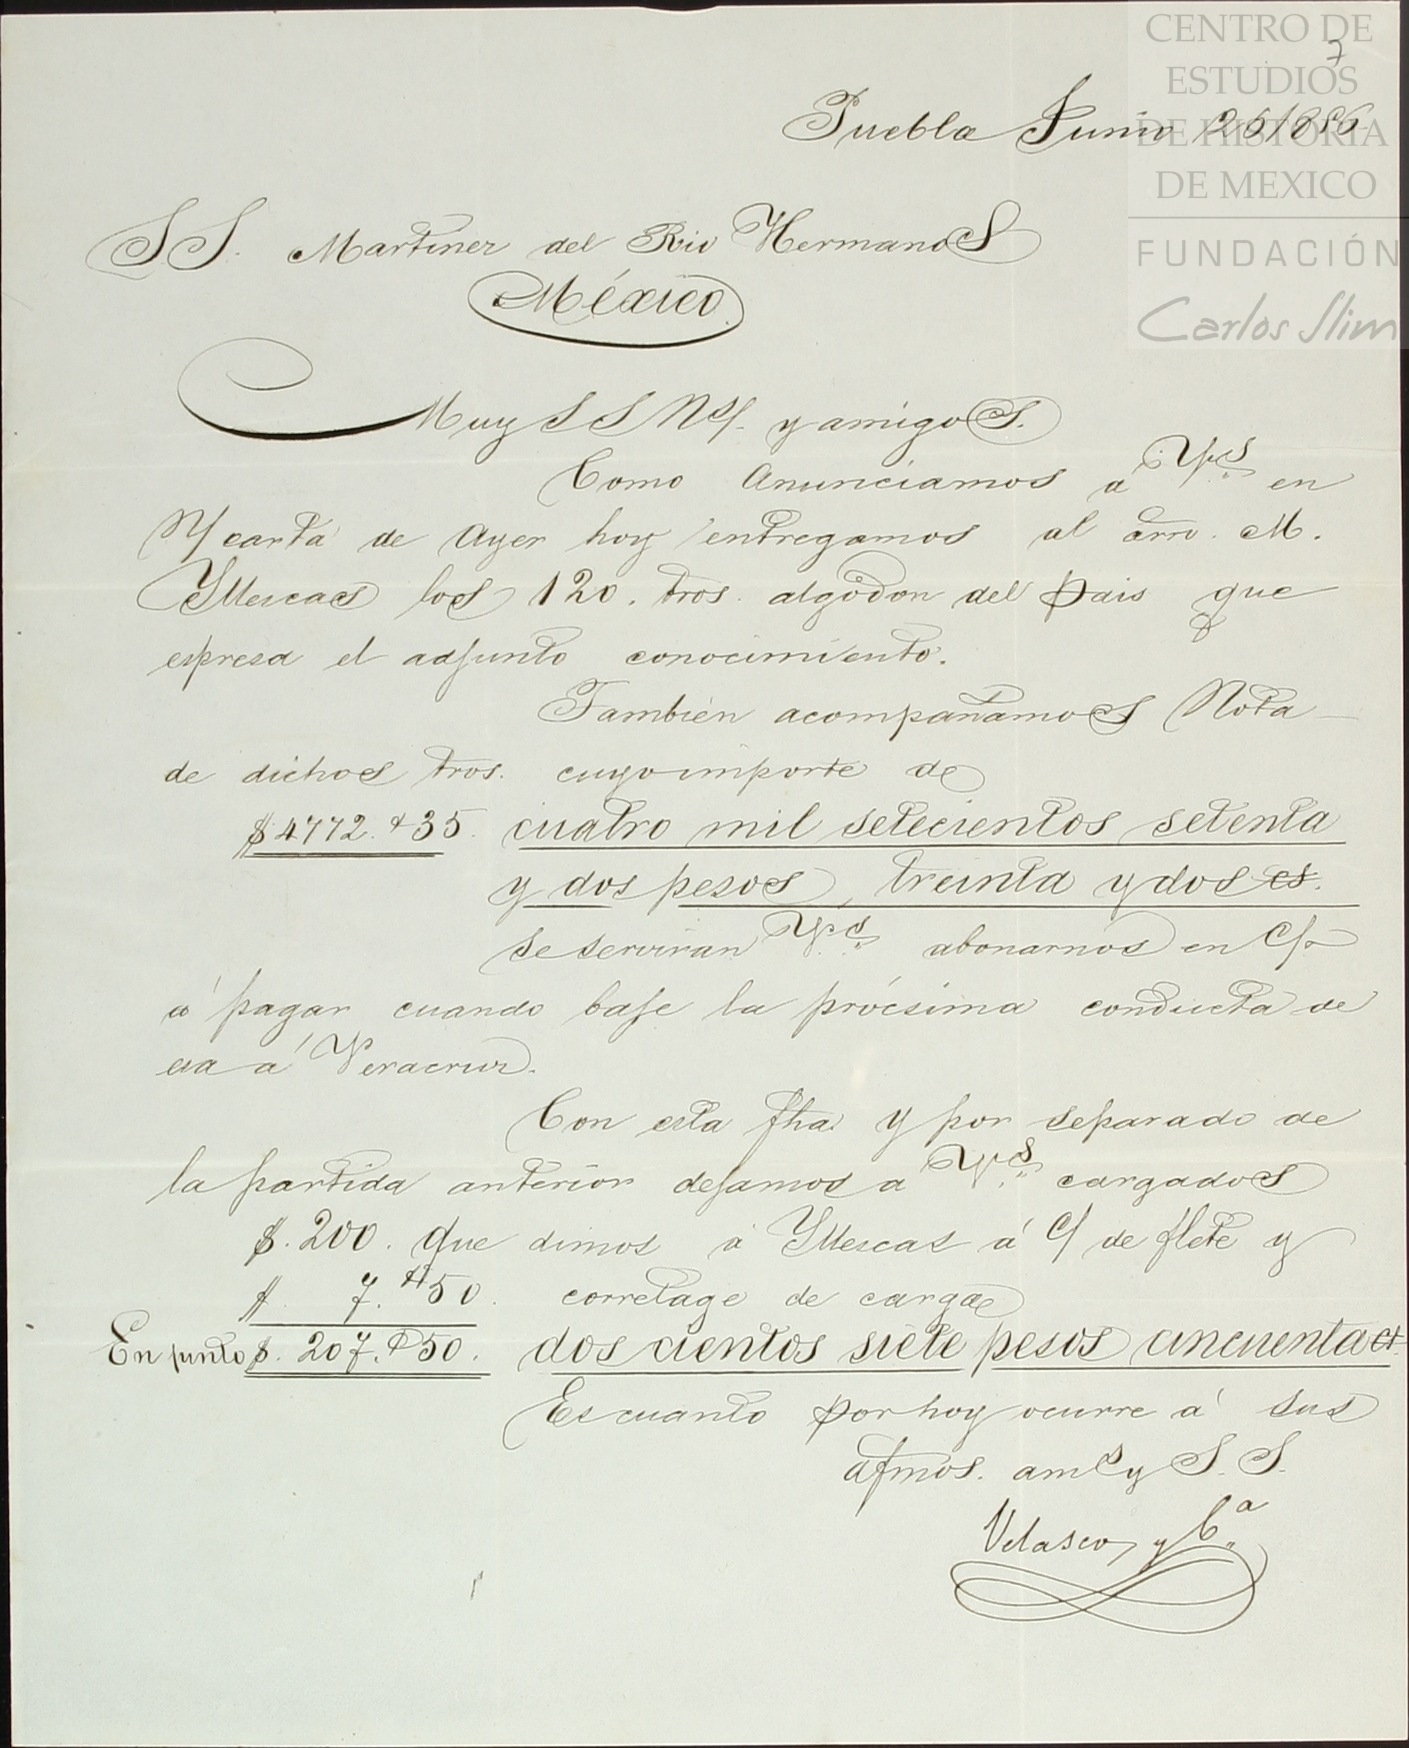 CENTRO DE
ESTUDIOS
DE HISTORIA
DE MEXICO
FUNDACIÓN
Carlos Slim
7
Puebla Junio 25/856
SS. Martinez del Rio Hermanos
México.
Muy SS Ns/. y amigos.
Como anunciamos á Vs. en
N/ carta de ayer hoy entregamos al arro. M.
Yllescas los 120. tros. algodon del pais que
espresa el adjunto conocimiento.
También acompañamos Nota
de dichos tros. cuyo importe de
$4772.35. cuatro mil setecientos setenta
y dos pesos, treinta y dos cs.
se serviran Vs. abonarnos en C/.
á pagar cuando baje la procsima conducta de
esa á Veracruz.
Con esta fha. y por separado de
la partida anterior dejamos a Vs. cargados
$. 200. que dimos á Yllescas á C/ de flete y
$ 7. 50. corretage de carga
En junto $. 207. 50. dos cientos siete pesos cincuenta cs.
Es cuanto por hoy ocurre á sus
afmos. ams y S. S.
Velasco y Ca.